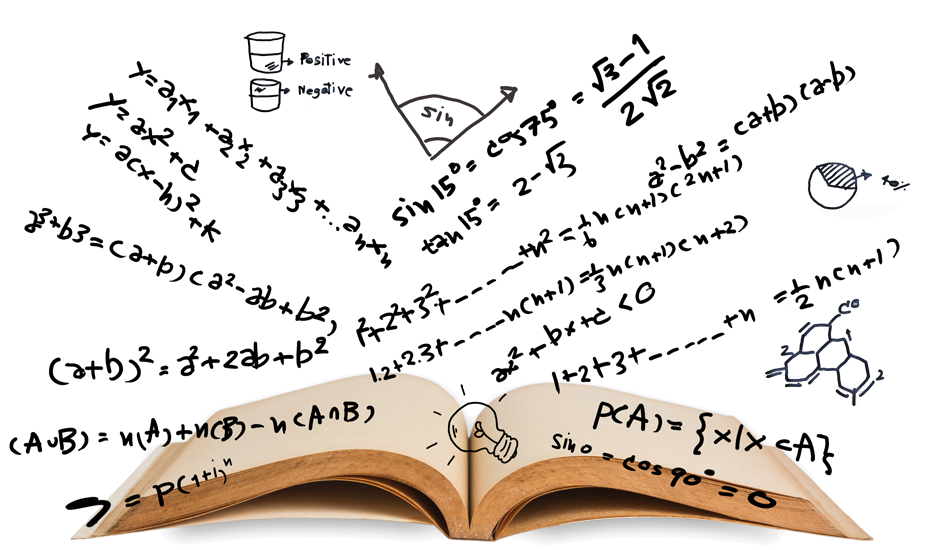 Positive
Negative
Y=a₁x₁+a₂x₂+a₃x₃+...aₙxₙ
Y=ax²+c
Y=a(x-h)²+k
sin
sin15°=cos75°=√3-1/2√2
tan15°=2-√3
a²-b²=(a+b)(a-b)
a³+b3=(a+b)(a²-ab+b2,
1²+2²+3²+------+n²=1/6n(n+1)(2n+1)
1.2+2.3+-----n(n+1)=1/3n(n+1)(n+2)
ax²+bx+c<0
1+2+3+------+n =1/2n(n+1)
2
1
2
(a+b)²=a²+2ab+b²
(A∪B)=n(A)+n(B)-n(A∩B)
P(A)={x|x⊂A}
sin0=cos90°=0
=P(1+i)ⁿ